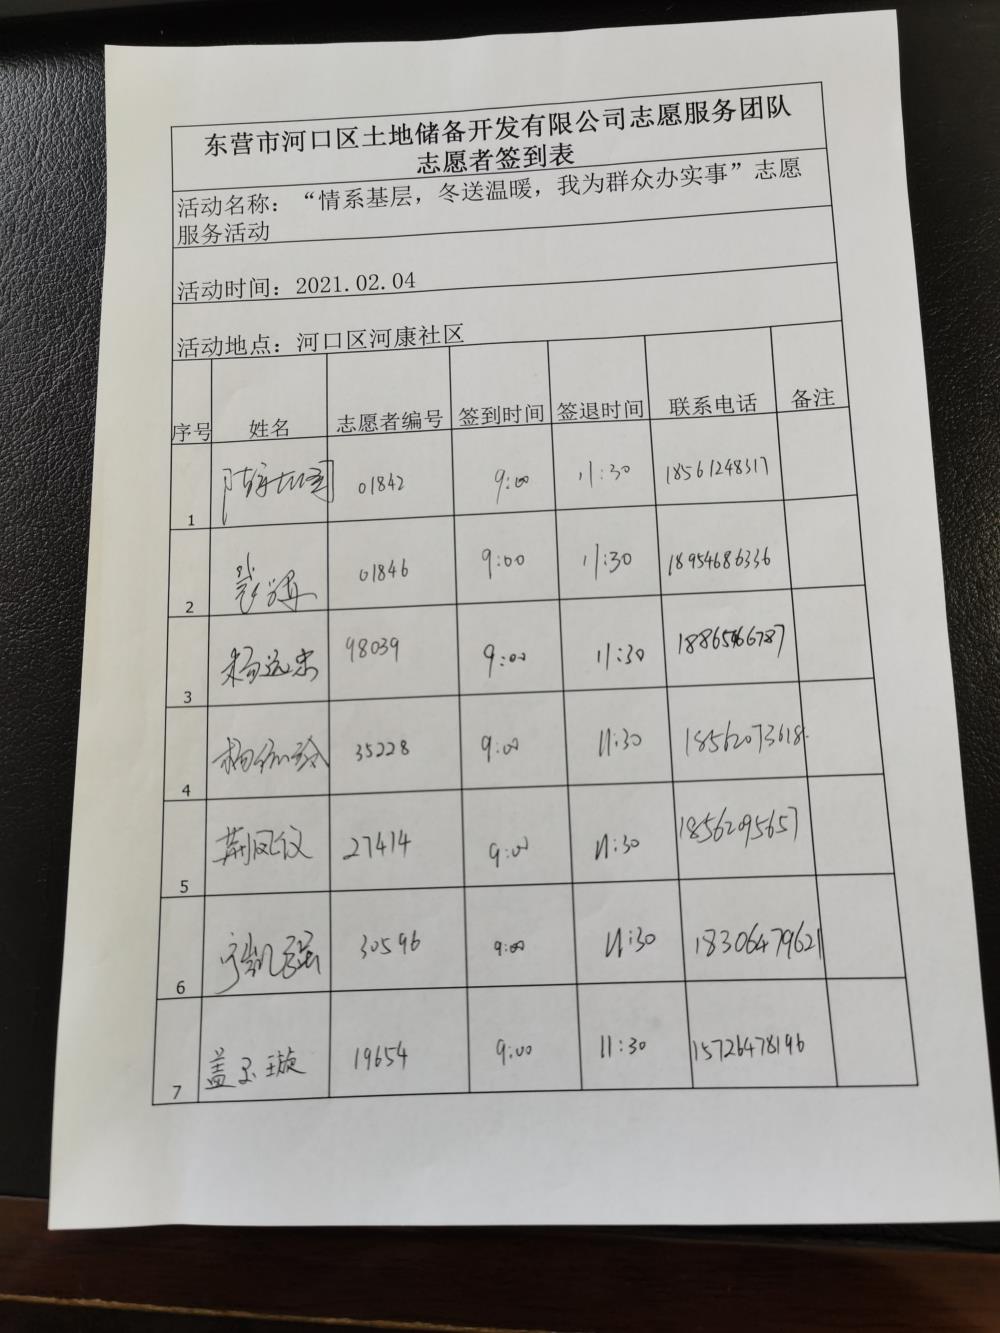 东营市河口区土地储备开发有限公司志愿服务团队
志愿者签到表
活动名称：“情系基层，冬送温暖，我为群众办实事”志愿
服务活动
活动时间：2021.02.04
活动地点：河口区河康社区
序号 姓名 志愿者编号 签到时间 签退时间 联系电话 备注
1 01842 9:00 11:30 18561248317
2 01846 9:00 11:30 18954686336
3 杨远忠 98039 9:00 11:30
4 35228 9:00 11:30 18562073618
5 荆凤仪 27414 9:00 11:30 18562095657
6 30596 9:00 11:30 18306479621
7 盖玉璇 19654 9:00 11:30 15726478196